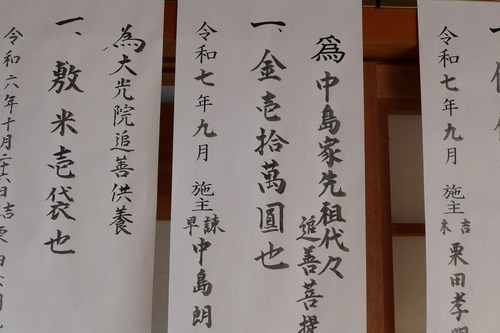 令和七年九月 施主 吉末 栗田孝
為中島家先祖代々追善菩提
一、金壱拾萬圓也
令和七年九月 施主 諫早 中島朗
為大光院追善供養
一、敷米壱袋也
令和六年十月二十六日 吉